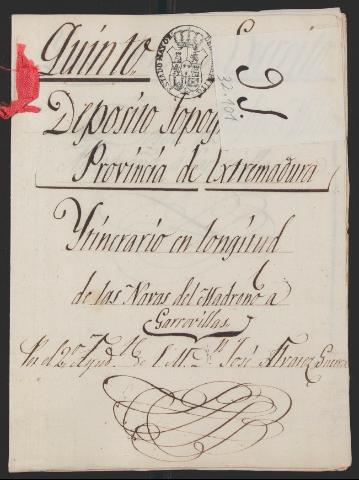 Quinto
95
32-101
Deposito Topog
Provincia de Extremadura
Ytinerario en longitud
de las Navas del Madroño a
Garrovillas
Por el 2º Ayud.te de E. M. D.n José Alvarez Guerra